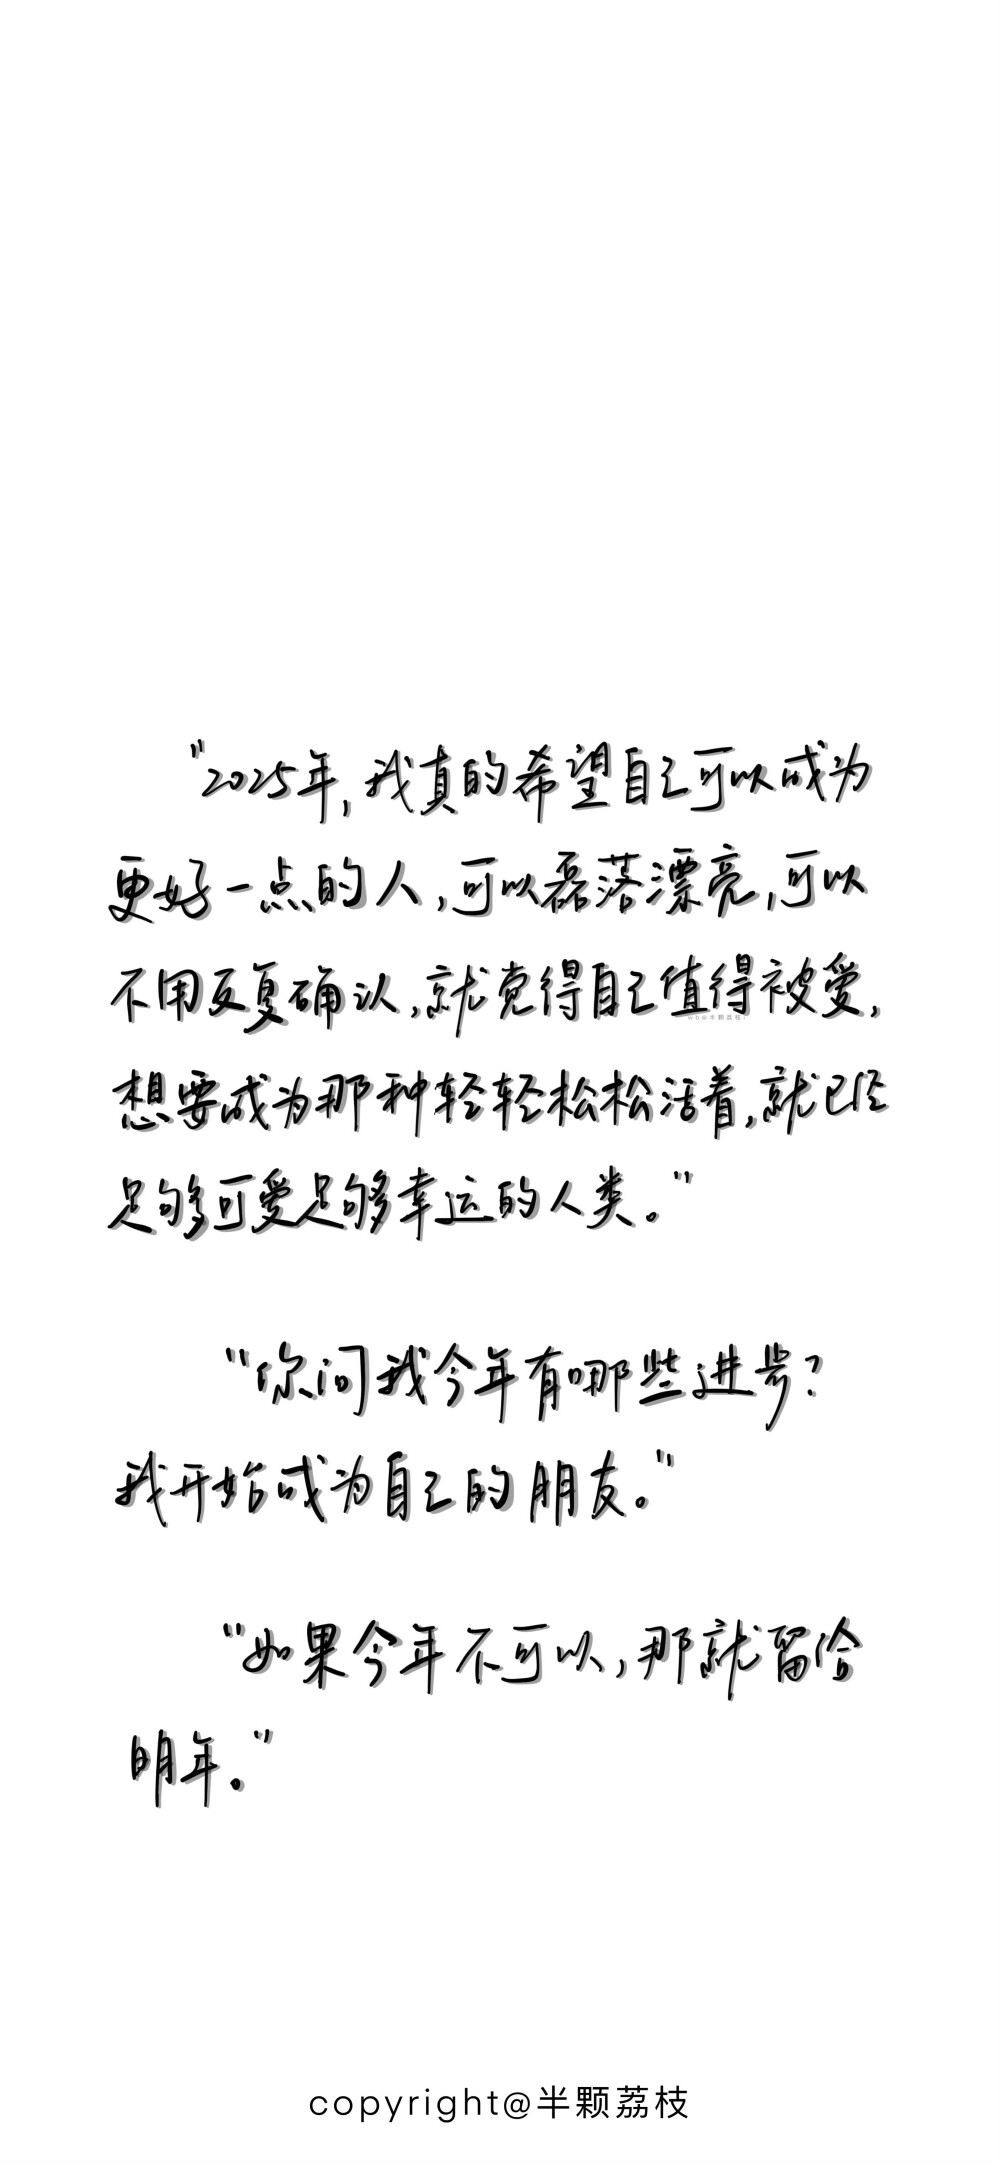 "2025年,我真的希望自己可以成为
更好一点的人,可以磊落漂亮,可以
不用反复确认,就觉得自己值得被爱,
想要成为那种轻轻松松活着,就已经
足够可爱足够幸运的人类。"
"你问我今年有哪些进步?
我开始成为自己的朋友。"
"如果今年不可以,那就留给
明年。"
copyright@半颗荔枝